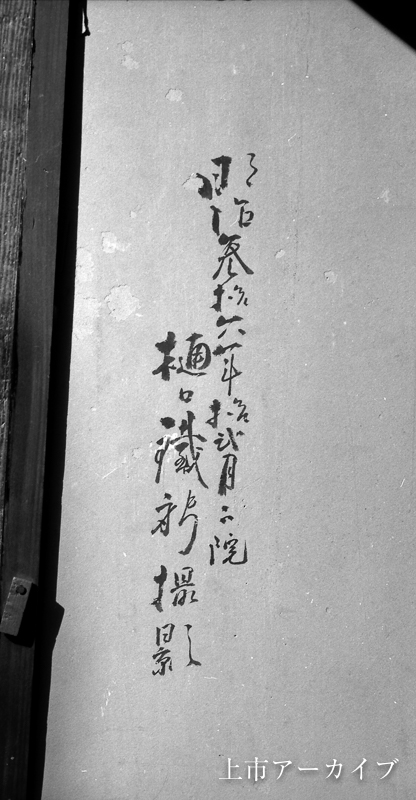 明治参拾六年拾弐月
樋口 撮影
上市アーカイブ